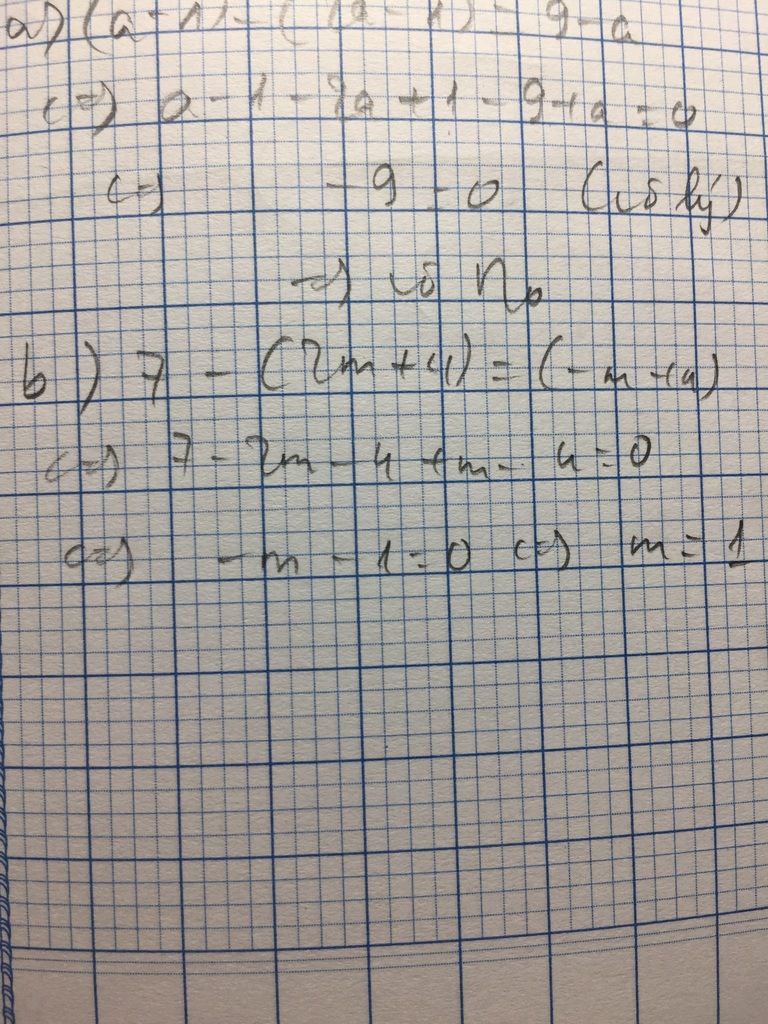 a) (a - 1) - (2a - 1) = 9 - a
<=> a - 1 - 2a + 1 - 9 + a = 0
<=> - 9 = 0 (vô lý)
=> vô no
b) 7 - (2m + 4) = (- m + 4)
<=> 7 - 2m - 4 + m - 4 = 0
<=> - m - 1 = 0 <=> m = 1